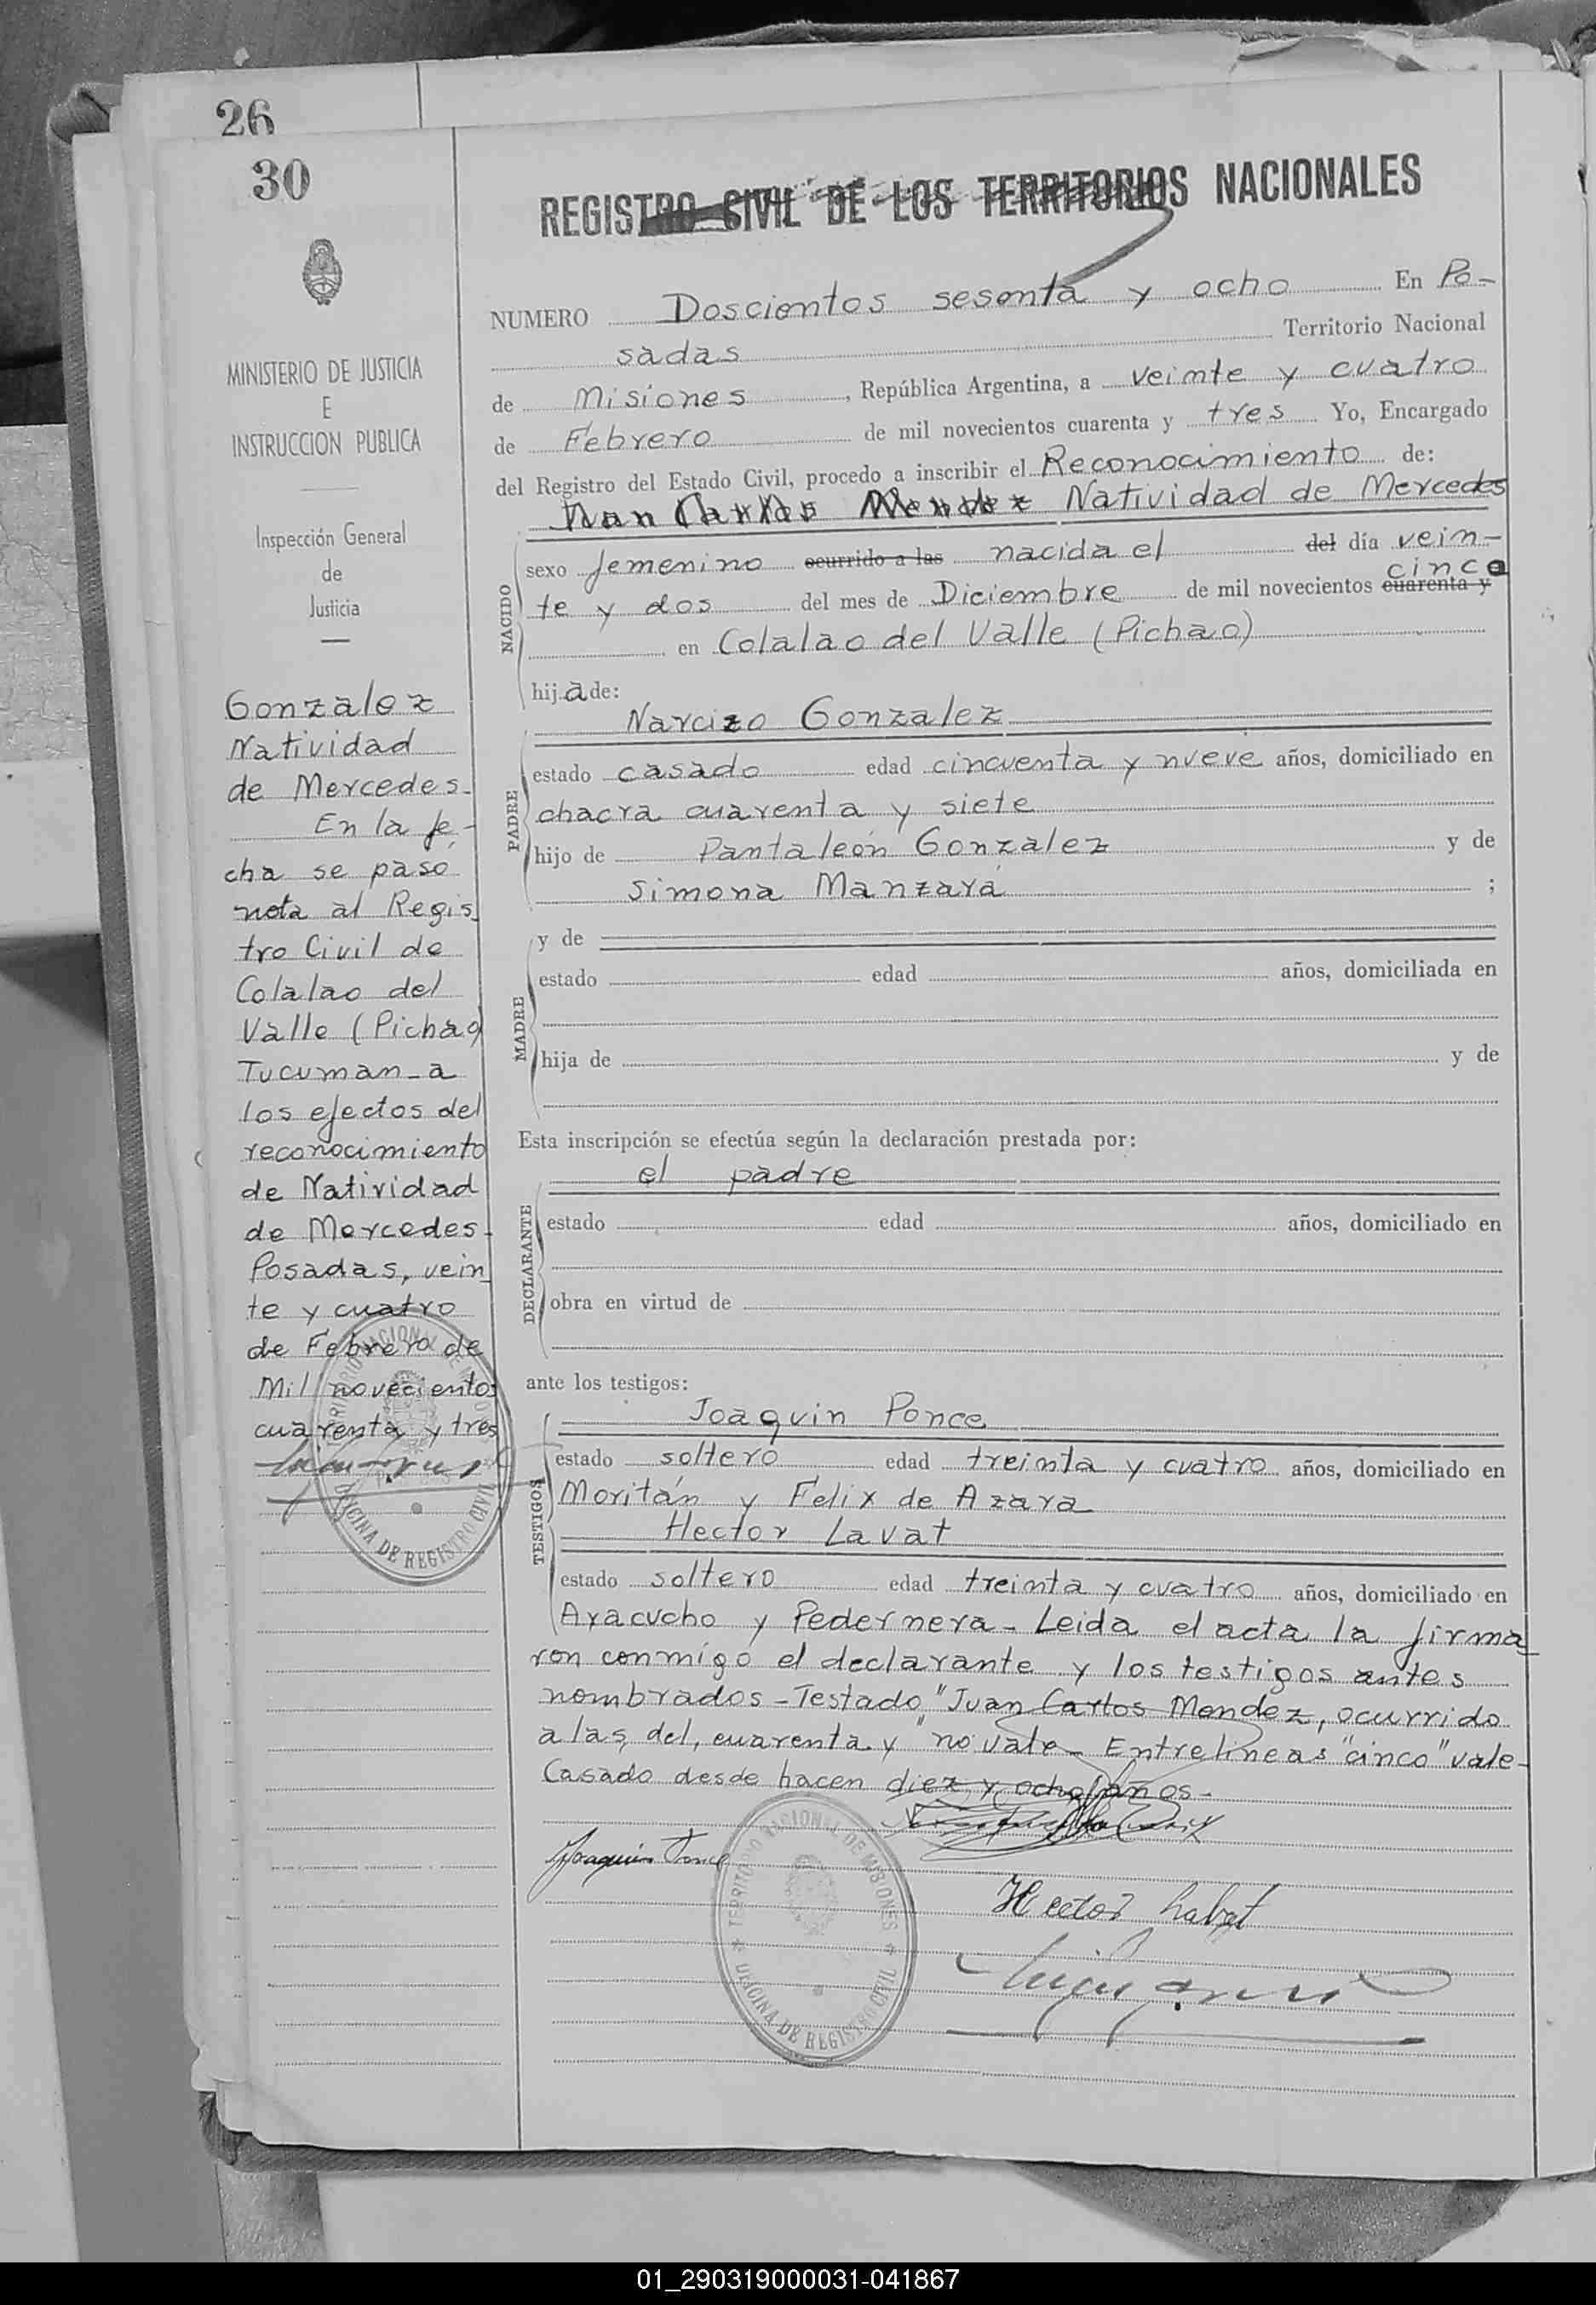 26
30
REGISTRO CIVIL DE LOS TERRITORIOS NACIONALES
NUMERO Doscientos sesenta y ocho En Po-
sadas Territorio Nacional
de Misiones, República Argentina, a veinte y cuatro
de Febrero de mil novecientos cuarenta y tres Yo, Encargado
del Registro del Estado Civil, procedo a inscribir el Reconocimiento de:
Juan Carlos Mendez Natividad de Mercedes
NACIDO
sexo femenino ocurrido a las nacida el del día vein-
cinco
te y dos del mes de Diciembre de mil novecientos cuarenta y
en Colalao del Valle (Pichao)
hija de:
Narcizo Gonzalez
PADRE
estado casado edad cincuenta y nueve años, domiciliado en
chacra cuarenta y siete
hijo de Pantaleón Gonzalez y de
Simona Manzará ;
MADRE
y de
estado edad años, domiciliada en
hija de y de
Esta inscripción se efectúa según la declaración prestada por:
el padre
DECLARANTE
estado edad años, domiciliado en
obra en virtud de
ante los testigos:
TESTIGOS
Joaquin Ponce
estado soltero edad treinta y cuatro años, domiciliado en
Moritán y Felix de Azara
Hector Lavat
estado soltero edad treinta y cuatro años, domiciliado en
Ayacucho y Pedernera - Leida el acta la firma
ron conmigo el declarante y los testigos antes
nombrados - Testado "Juan Carlos Mendez, ocurrido
a las, del, cuarenta y" no vale - Entrelineas "cinco" vale -
Casado desde hacen diez y ocho años -
Joaquin Ponce
Hector Labat
TERRITORIO NACIONAL DE MISIONES
OFICINA DE REGISTRO CIVIL
MINISTERIO DE JUSTICIA
E
INSTRUCCION PUBLICA
Inspección General
de
Justicia
Gonzalez
Natividad
de Mercedes -
En la fe-
cha se pasó
nota al Regis
tro Civil de
Colalao del
Valle (Pichao)
Tucuman - a
los efectos del
reconocimiento
de Natividad
de Mercedes -
Posadas, vein
te y cuatro
de Febrero de
Mil novecientos
cuarenta y tres
OFICINA DE REGISTRO CIVIL
01_290319000031-041867